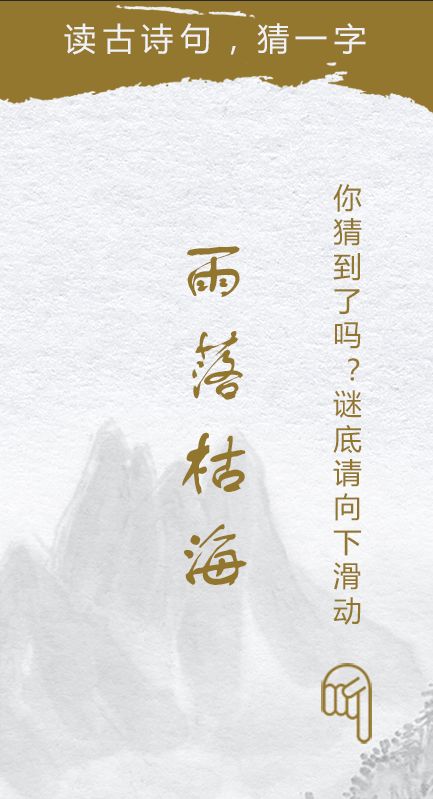 读古诗句，猜一字
雨落枯海
你猜到了吗？谜底请向下滑动